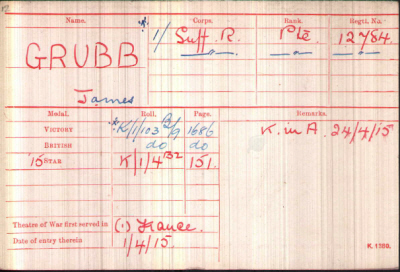 Name. Corps. Rank. Regtl. No.
GRUBB 1/ Suff. R. Pte. 12784.
James
Medal. Roll. Page. Remarks.
VICTORY K/1/103 B9 1686 K. in A. 24/4/15
BRITISH do do
'15 STAR K/1/4 B2 151.
Theatre of War first served in (1) France.
Date of entry therein 1/4/15.
K. 1380.